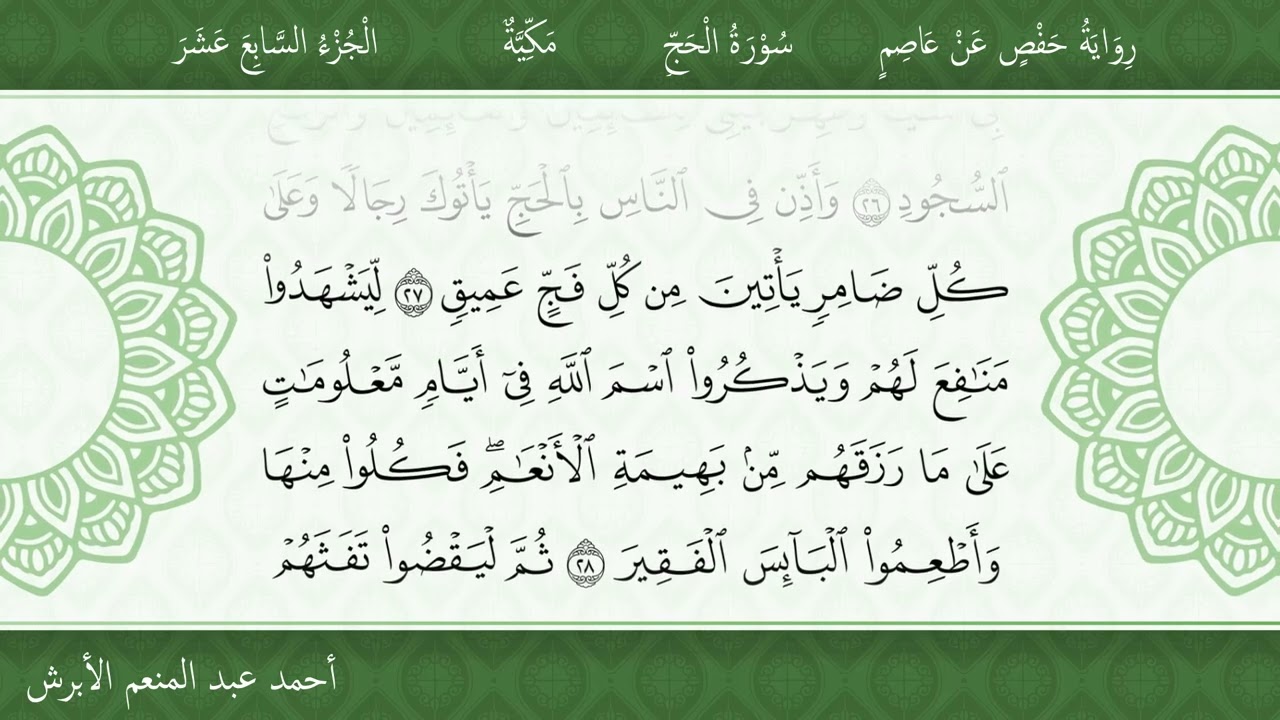 رِوَايَةُ حَفْصٍ عَنْ عَاصِمٍ سُوْرَةُ الْحَجِّ مَكِّيَّةٌ الْجُزْءُ السَّابِعَ عَشَرَ
ٱلسُّجُودِ ٢٦ وَأَذِّن فِى ٱلنَّاسِ بِٱلْحَجِّ يَأْتُوكَ رِجَالًا وَعَلَىٰ
كُلِّ ضَامِرٍ يَأْتِينَ مِن كُلِّ فَجٍّ عَمِيقٍ ٢٧ لِّيَشْهَدُوا۟
مَنَـٰفِعَ لَهُمْ وَيَذْكُرُوا۟ ٱسْمَ ٱللَّهِ فِىٓ أَيَّامٍ مَّعْلُومَـٰتٍ
عَلَىٰ مَا رَزَقَهُم مِّنۢ بَهِيمَةِ ٱلْأَنْعَـٰمِ ۖ فَكُلُوا۟ مِنْهَا
وَأَطْعِمُوا۟ ٱلْبَآئِسَ ٱلْفَقِيرَ ٢٨ ثُمَّ لْيَقْضُوا۟ تَفَثَهُمْ
أحمد عبد المنعم الأبرش